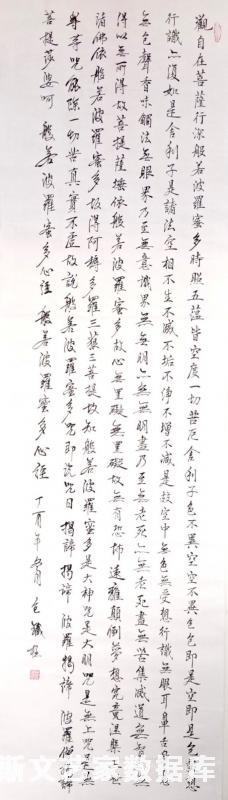 觀自在菩薩行深般若波羅蜜多時照五蘊皆空度一切苦厄舍利子色不異空空不異色色即是空空即是色受想
行識亦復如是舍利子是諸法空相不生不滅不垢不淨不增不減是故空中無色無受想行識無眼耳鼻舌身意
無色聲香味觸法無眼界乃至無意識界無無明亦無無明盡乃至無老死亦無老死盡無苦集滅道無智亦無
得以無所得故菩提薩埵依般若波羅蜜多故心無罣礙無罣礙故無有恐怖遠離顛倒夢想究竟涅槃三世
諸佛依般若波羅蜜多故得阿耨多羅三藐三菩提故知般若波羅蜜多是大神咒是大明咒是無上咒是無
等等咒能除一切苦真實不虛故說般若波羅蜜多咒即說咒曰揭諦揭諦波羅揭諦波羅僧揭諦
菩提薩婆呵 般若波羅蜜多心經 般若波羅蜜多心經 丁酉年
斯文艺家数据库